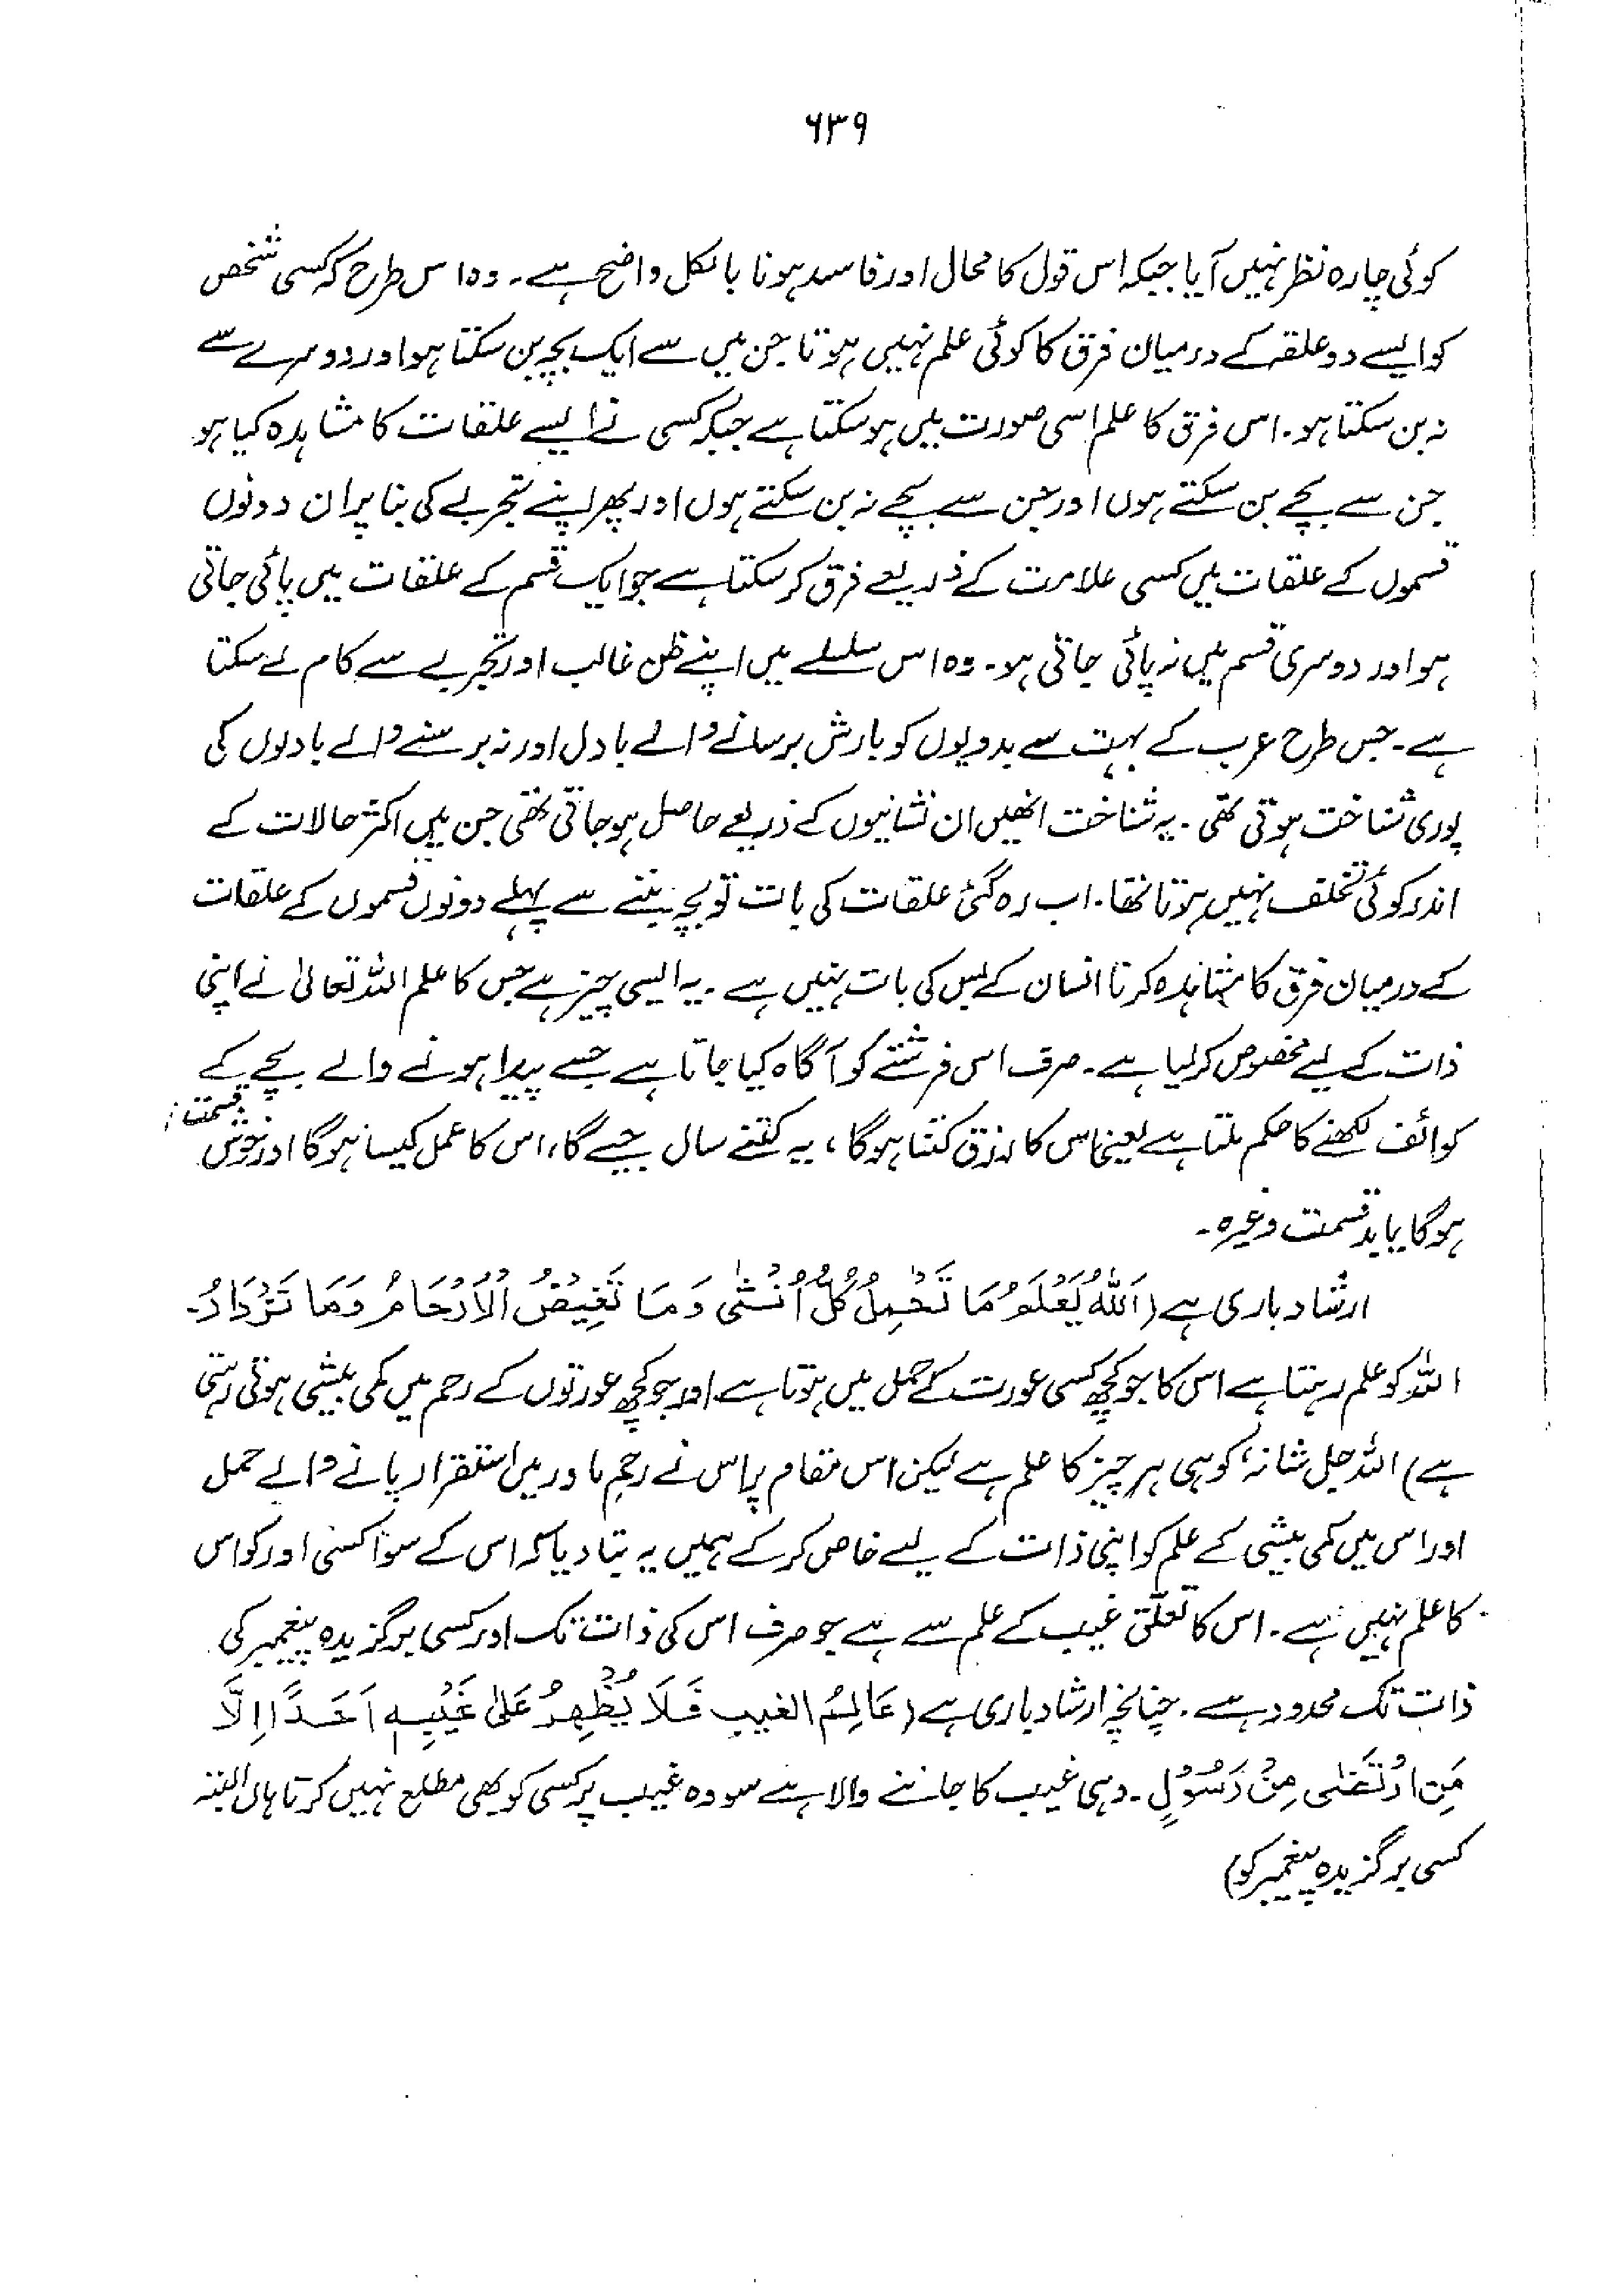 ۶۳۹
کوئی چارہ نظر نہیں آیا جبکہ اس قول کا محال اور فاسد ہونا بالکل واضح ہے۔ وہ اس طرح کہ کسی شخص
کو ایسے دو علقہ کے درمیان فرق کا کوئی علم نہیں ہوتا جن میں سے ایک بچہ بن سکتا ہو اور دوسرے سے
نہ بن سکتا ہو۔ اس فرق کا علم اسی صورت میں ہو سکتا ہے جبکہ کسی نے ایسے علقات کا مشاہدہ کیا ہو
جن سے بچے بن سکتے ہوں اور جن سے بچے نہ بن سکتے ہوں اور پھر اپنے تجربے کی بنا پر ان دونوں
قسموں کے علقات میں کسی علامت کے ذریعے فرق کر سکتا ہے جو ایک قسم کے علقات میں پائی جاتی
ہو اور دوسری قسم میں نہ پائی جاتی ہو۔ وہ اس سلسلے میں اپنے ظن غالب اور تجربے سے کام لے سکتا
ہے۔ جس طرح عرب کے بہت سے بدویوں کو بارش برسانے والے بادل اور نہ برسنے والے بادلوں کی
پوری شناخت ہوتی تھی۔ یہ شناخت انھیں ان نشانیوں کے ذریعے حاصل ہو جاتی تھی جن میں اکثر حالات کے
اندر کوئی تخلف نہیں ہوتا تھا۔ اب رہ گئی علقات کی بات تو بچہ بننے سے پہلے دونوں قسموں کے علقات
کے درمیان فرق کا مشاہدہ کرنا انسان کے بس کی بات نہیں ہے۔ یہ ایسی چیز ہے جس کا علم اللہ تعالیٰ نے اپنی
ذات کے لیے مخصوص کر لیا ہے۔ صرف اس فرشتے کو آگاہ کیا جاتا ہے جسے پیدا ہونے والے بچے کے
کوائف لکھنے کا حکم ملتا ہے یعنی اس کا رزق کتنا ہوگا، یہ کتنے سال جیے گا، اس کا عمل کیسا ہوگا اور خوش قسمت
ہوگا یا بدقسمت وغیرہ۔
ارشاد باری ہے (اَللّٰهُ یَعْلَمُ مَا تَحْمِلُ كُلُّ اُنْثٰی وَمَا تَغِیْضُ الْاَرْحَامُ وَمَا تَزْدَادُ۔
اللہ کو علم رہتا ہے اس کا جو کچھ کسی عورت کے حمل میں ہوتا ہے اور جو کچھ عورتوں کے رحم میں کمی بیشی ہوتی رہتی
ہے) اللہ جل شانہٗ کو ہی ہر چیز کا علم ہے لیکن اس مقام پر اس نے رحمِ مادر میں استقرار پانے والے حمل
اور اس میں کمی بیشی کے علم کو اپنی ذات کے لیے خاص کر کے ہمیں یہ بتا دیا کہ اس کے سوا کسی اور کو اس
کا علم نہیں ہے۔ اس کا تعلق غیب کے علم سے ہے جو صرف اس کی ذات تک اور کسی برگزیدہ پیغمبر کی
ذات تک محدود ہے۔ چنانچہ ارشاد باری ہے (عَالِمُ الغیب فَلَا یُظْهِرُ عَلٰی غَیْبِهٖ اَحَدًا اِلَّا
مَنِ ارْتَضٰی مِنْ رَسُوْلٍ۔ وہی غیب کا جاننے والا ہے سو وہ غیب پر کسی کو بھی مطلع نہیں کرتا ہاں البتہ
کسی برگزیدہ پیغمبر کو)